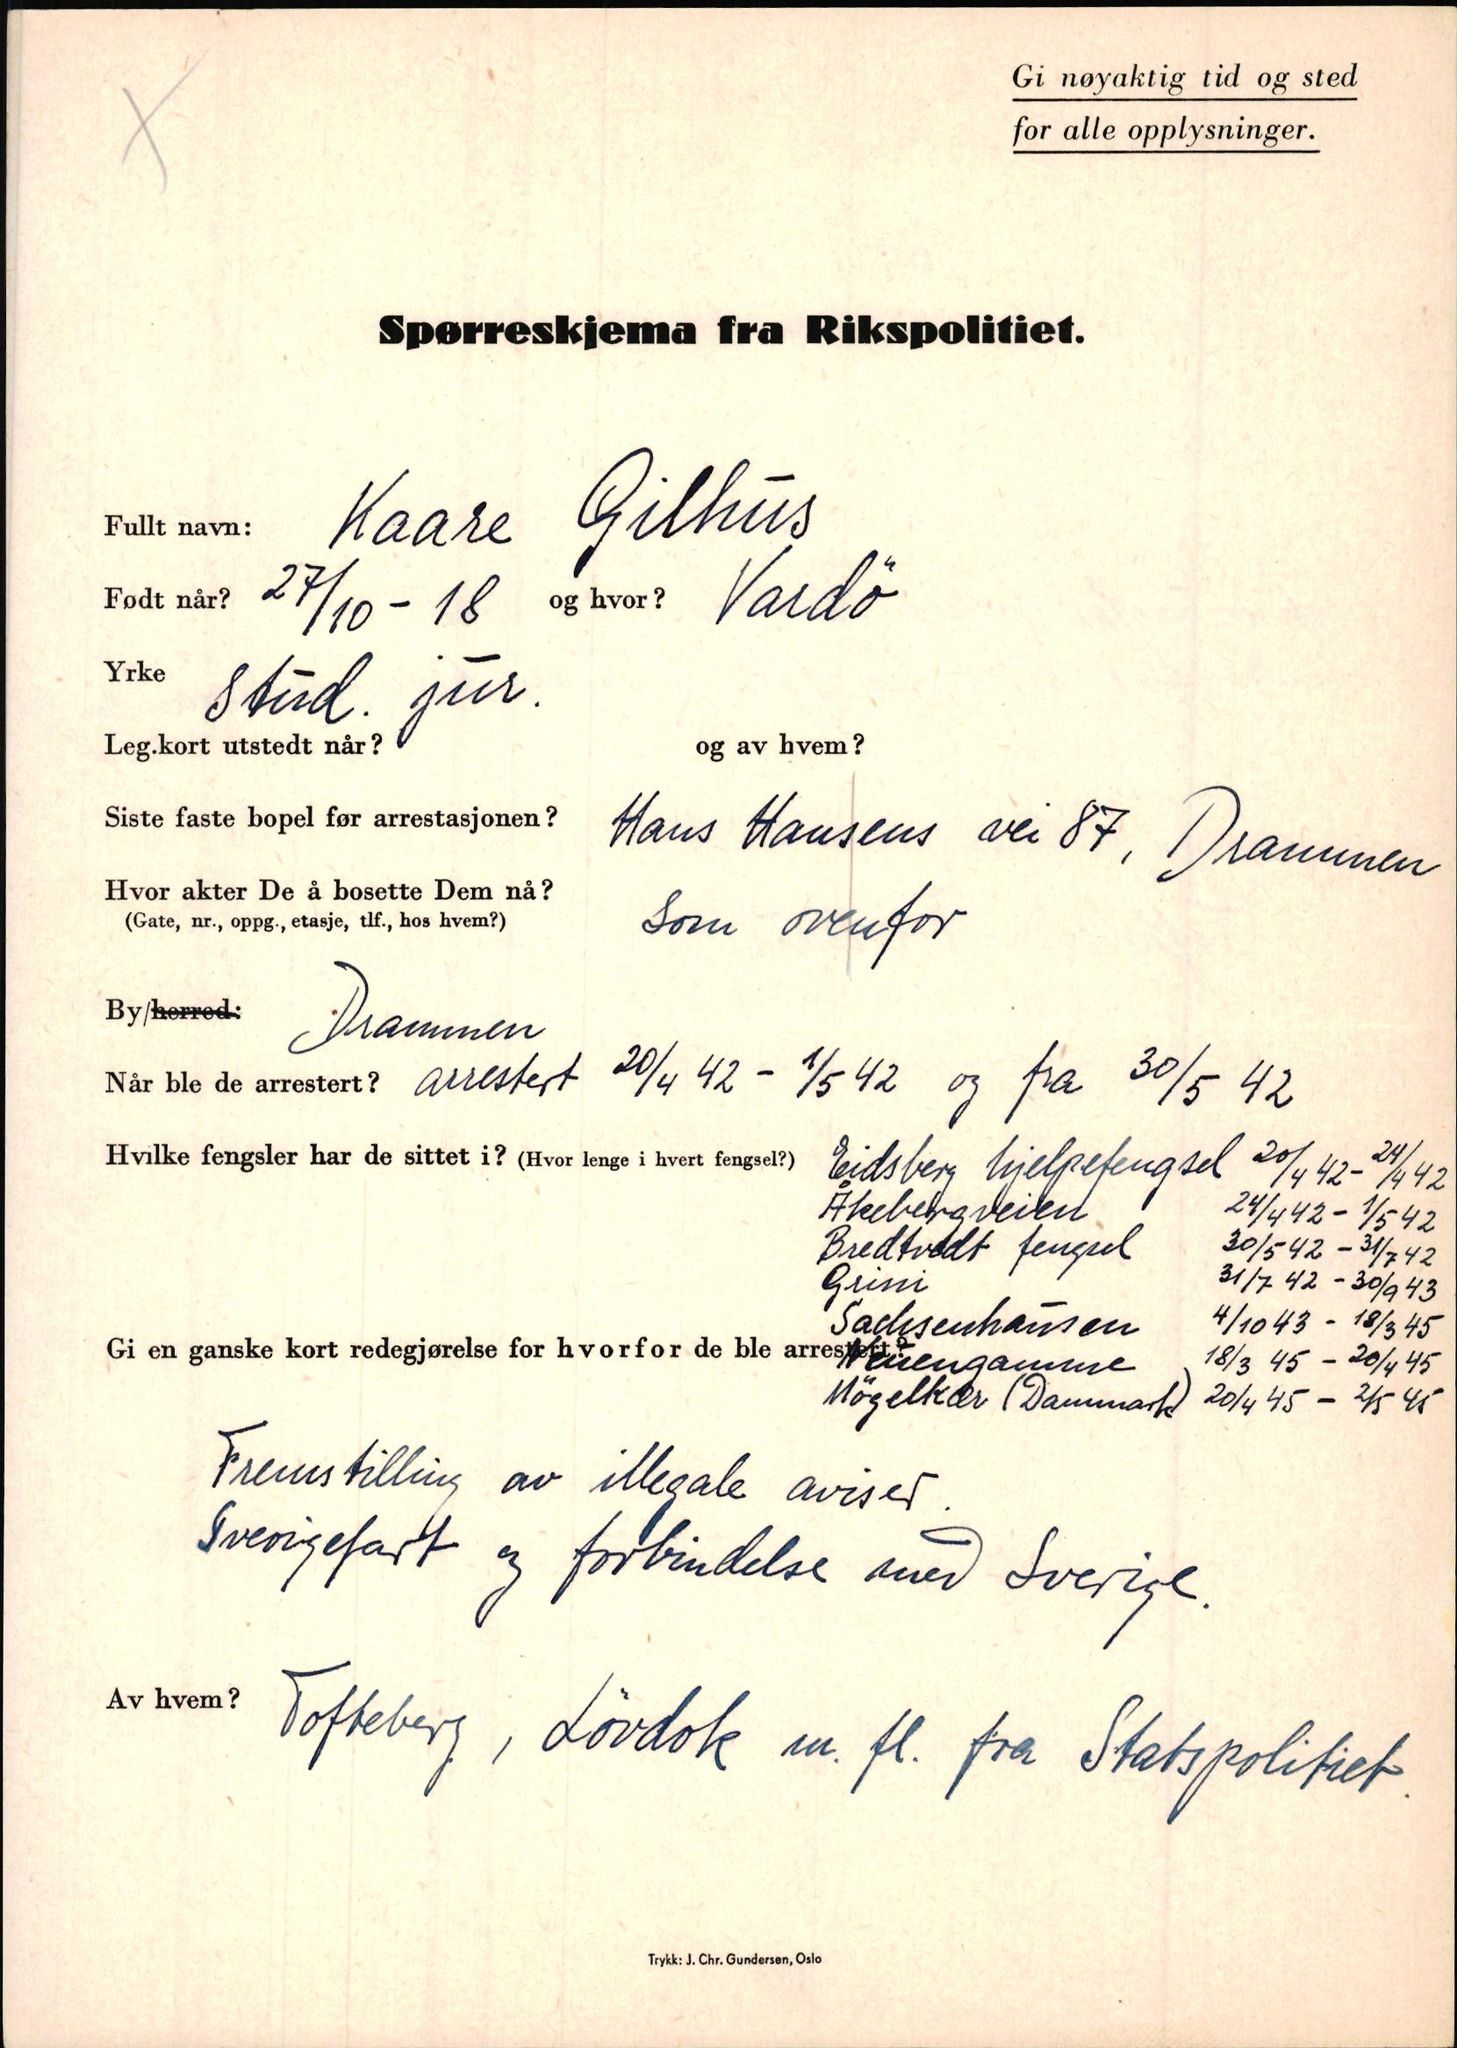 Gi nøyaktig tid og sted
for alle opplysninger.
Spørreskjema fra Rikspolitiet.
Fullt navn: Kaare Gilhus
Født når? 27/10 - 18 og hvor? Vardö
Yrke stud. jur.
Leg.kort utstedt når? og av hvem?
Siste faste bopel før arrestasjonen? Hans Hansens vei 87, Drammen
Hvor akter De å bosette Dem nå? Som ovenfor
(Gate, nr., oppg., etasje, tlf., hos hvem?)
By/herred: Drammen
Når ble de arrestert? arrestert 20/4 42 - 1/5 42 og fra 30/5 42
Hvilke fengsler har de sittet i? (Hvor lenge i hvert fengsel?) Eidsberg hjelpefengsel 20/4 42 - 24/4 42
Åkebergveien 24/4 42 - 1/5 42
Bredtvedt fengsel 30/5 42 - 31/7 42
Grini 31/7 42 - 30/9 43
Sachsenhausen 4/10 43 - 18/3 45
Gi en ganske kort redegjørelse for hvorfor de ble arrestert?
Neuengamme 18/3 45 - 20/4 45
Mögelkær (Dannmark) 20/4 45 - 2/5 45
Fremstilling av illegale aviser.
Sverigefart og forbindelse med Sverige.
Av hvem? Tofteberg, Lövdok m. fl. fra Statspolitiet.
Trykk: J. Chr. Gundersen, Oslo